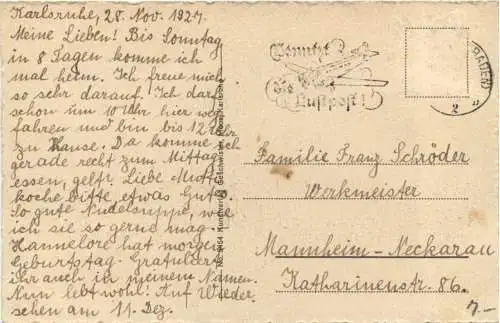 Karlsruhe, 28. Nov. 1927.
Meine Lieben! Bis Sonntag
in 8 Tagen komme ich
mal heim. Ich freue mich
so sehr darauf. Ich darf
schon um 10 Uhr hier weg
fahren und bin bis 12 Uhr
zu Hause. Da komme ich
gerade recht zum Mittag
essen, gelt. Liebe Mutter
koche bitte etwas Gutes.
So gute Nudelsuppe, wie
ich sie so gerne mag.
Hannelore hat morgen
Geburtstag. Gratuliert
ihr auch in meinem Namen.
Nun lebt wohl! Auf Wieder
sehen am 11. Dez.
Kunstverlag
Benutzt
die
Luftpost!
(BADEN)
2
Familie Franz Schröder
Werkmeister
Mannheim-Neckarau
Katharinenstr. 86.
7.-